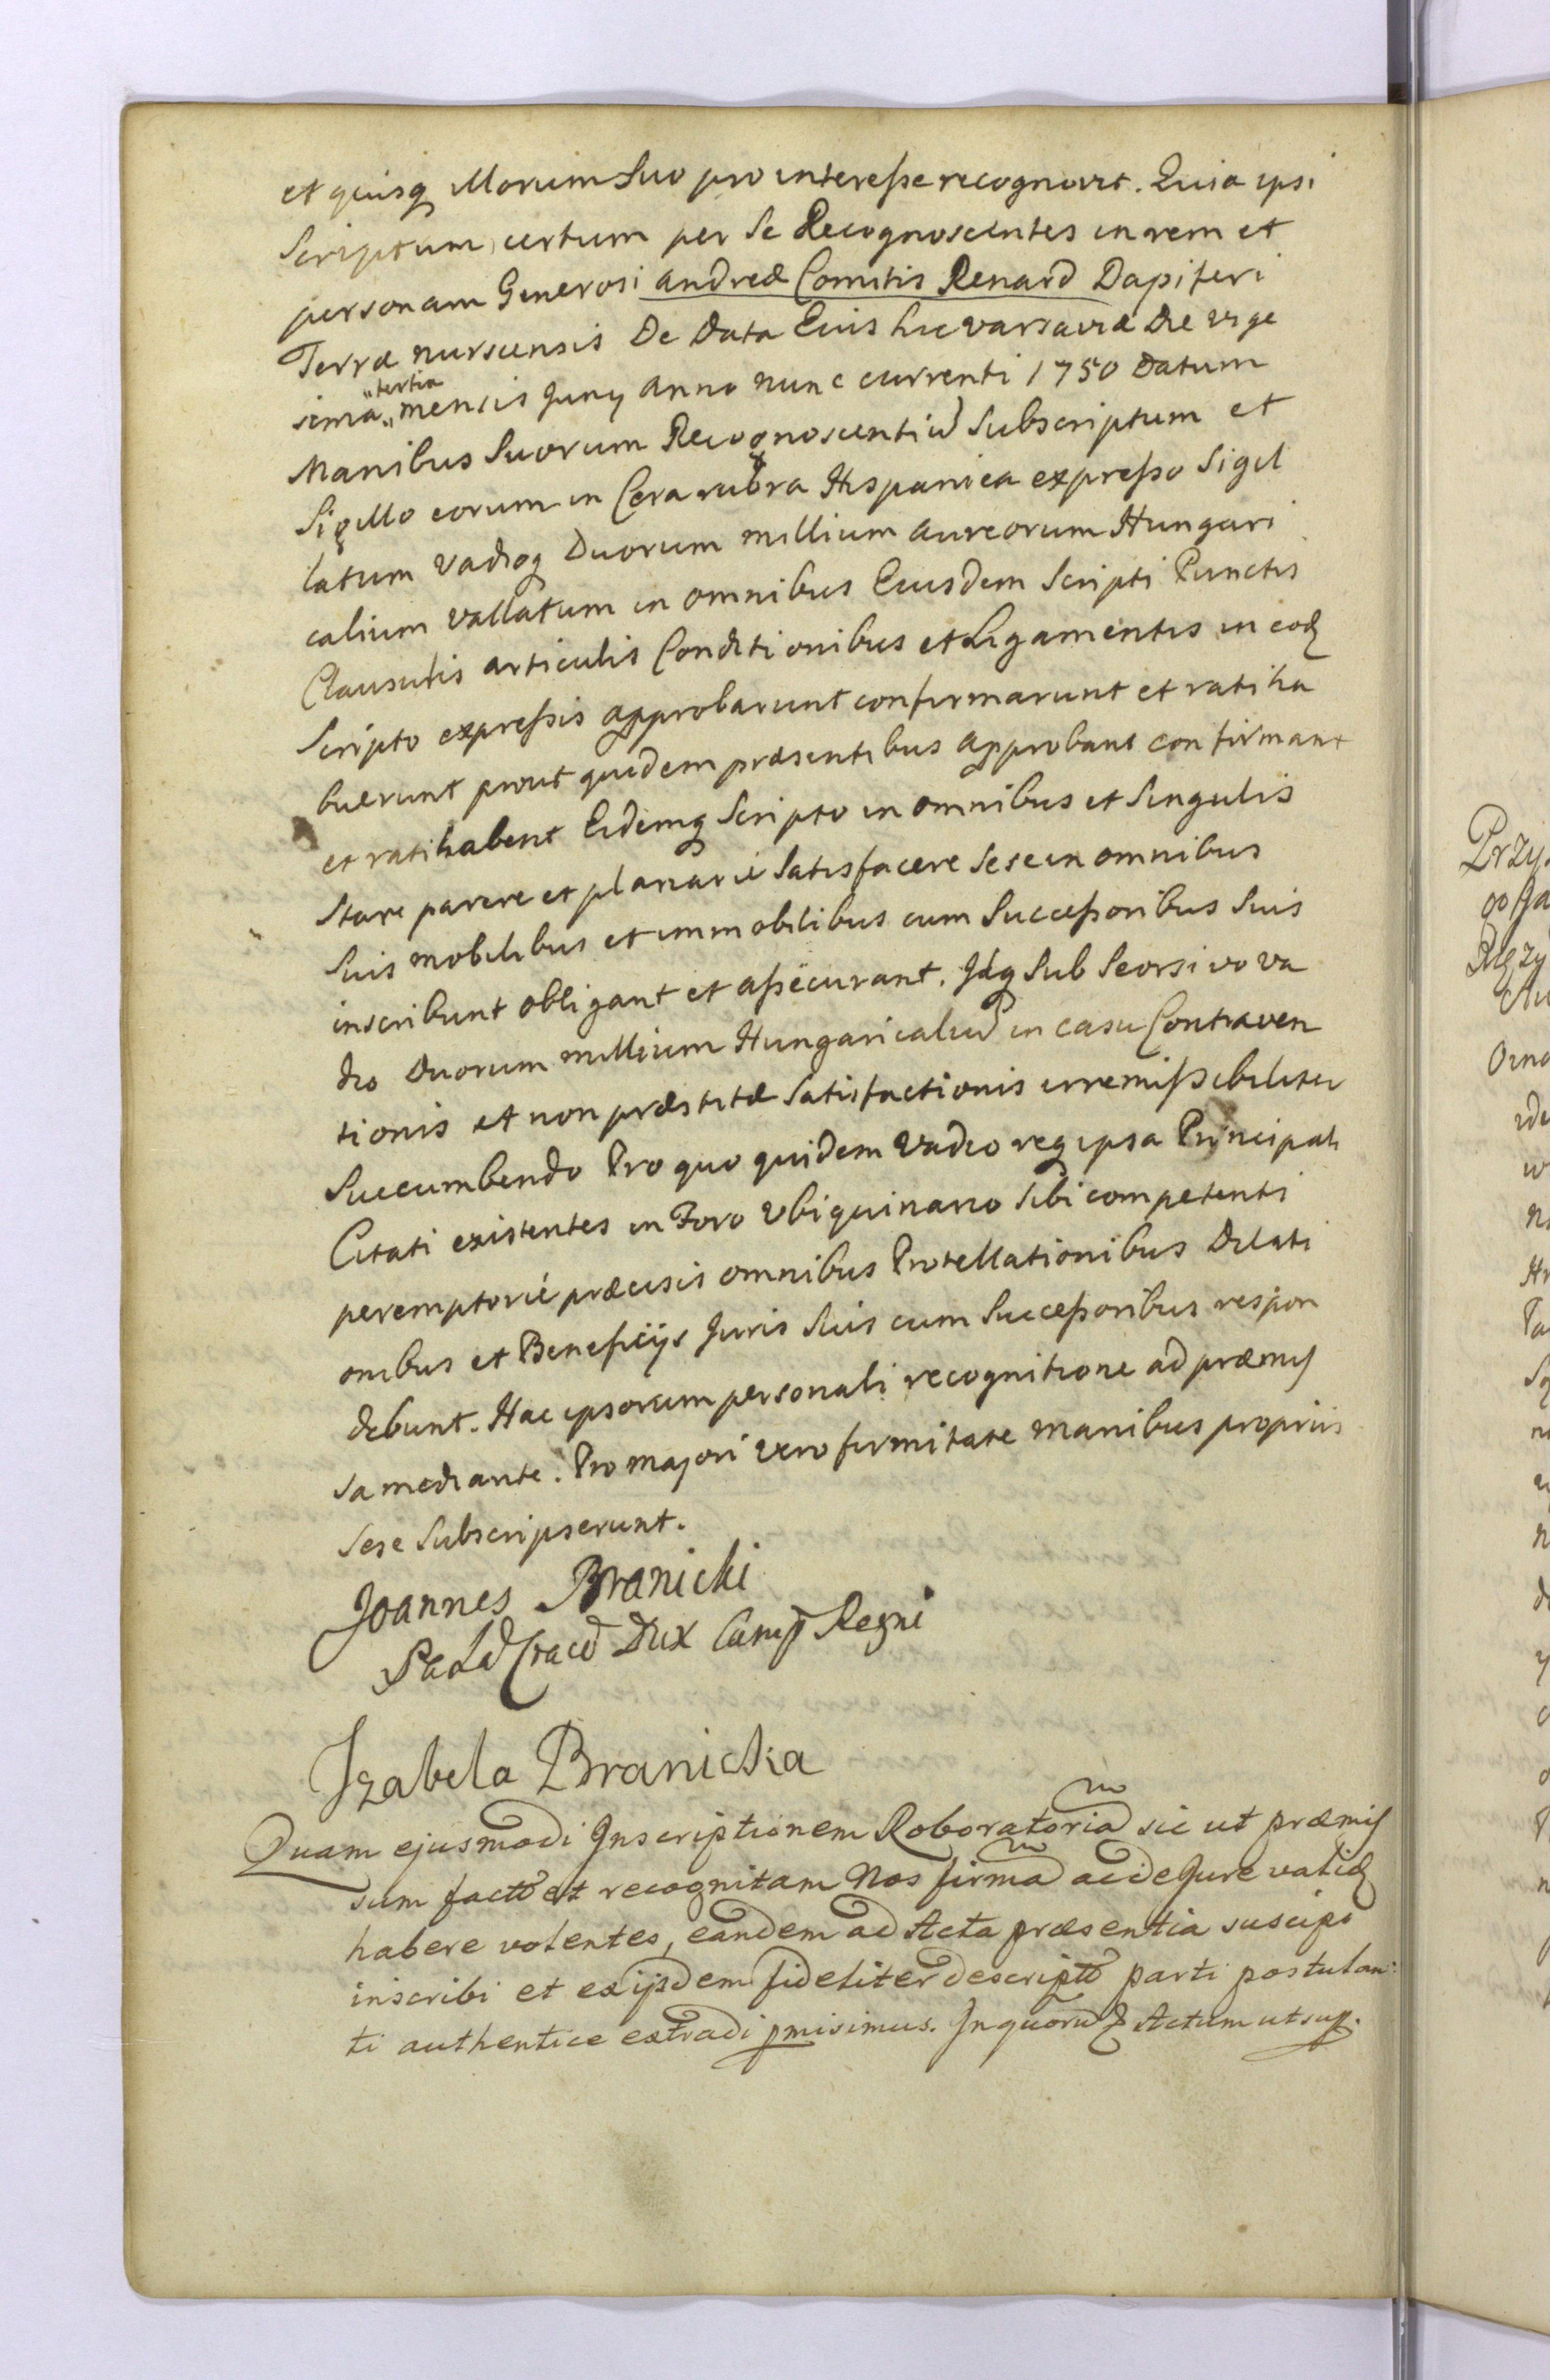 et quisq illorum Suo pro interesse recognovit. Quia ipsi
Scriptum certum per Se Recognoscentes in rem et
personam Generosi Andreæ Comitis Renard Dapiferi
Terræ nurscensis De Data Eius hic varsaviæ Die vige
sima "tertia" mensis Juny Anno nunc currenti 1750 Datum
Manibus Suorum Recognoscentiu Subscriptum et
Sigillo eorum in Cera rubra Hispanica expresso Sigil
latum vadioq Duorum millium Aureorum Hungari
calium vallatum in omnibus Eiusdem Scripti Punctis
Clausulis articulis Conditionibus et Ligamentis in eod
Scripto expressis approbarunt confirmarunt et ratiha
buerunt prout quidem præsentibus approbant confirmant
et ratihabent Eidemq Scripto in omnibus et Singulis
Stare parere et plenarie Satisfacere Sese in omnibus
Suis mobilibus et immobilibus cum Successoribus Suis
inscribunt obligant et assecurant. Idq Sub Seorsivo va
dio Duorum millium Hungaricaliu in casu Contraven
tionis et non præstitæ Satisfactionis irremissibiliter
Succumbendo Pro quo quidem vadio req ipsa Principali
Citati existentes in Foro Ubiquinario Sibi competenti
peremptorie præcisis omnibus Protellationibus Dilati
onibus et Beneficijs Juris Suis cum Successoribus respon
debunt. Hac ipsorum personali recognitione ad præmis
sa mediante. Pro majori vero firmitate manibus propriis
Sese Subscripserunt.
Joannes Branicki
Palat Craco Dux Camp Regni
Izabela Branicka
Quam ejusmodi Inscriptionem Roboratoria sic ut præmis
sum facto et recognitam Nos firma ac de Jure valid
habere volentes, eandem ad Acta præsentia suscipi
inscribi et ex ijsdem fideliter descripto parti postulan
ti authentice extradi pmisimus. In quoru & Actum ut sup.
Przy
go Ga